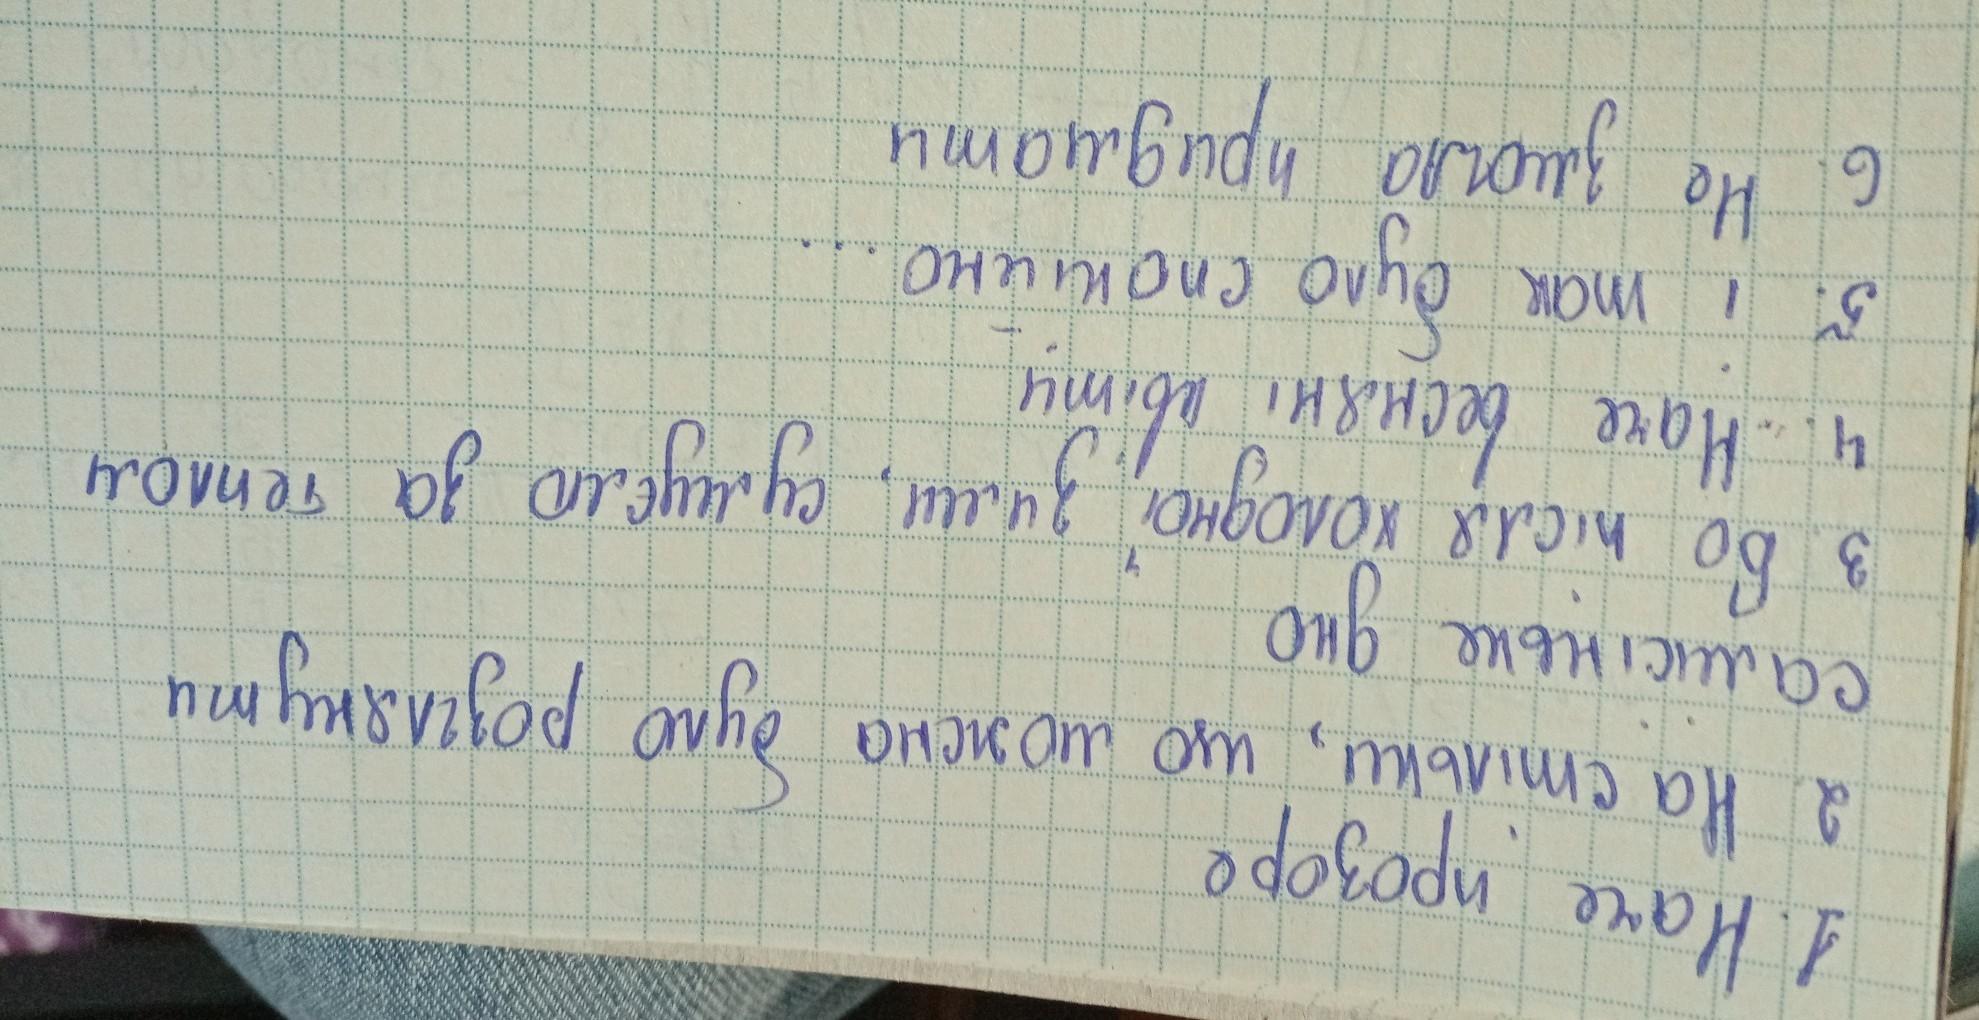 1. Наче прозоре
2. На стільки, що можна було розглянути
самісіньке дно
3 Бо після холодної зими, сумуєло за теплом
4. Наче весняні квіти
5. і так було спокійно...
6. Не змогла придумати